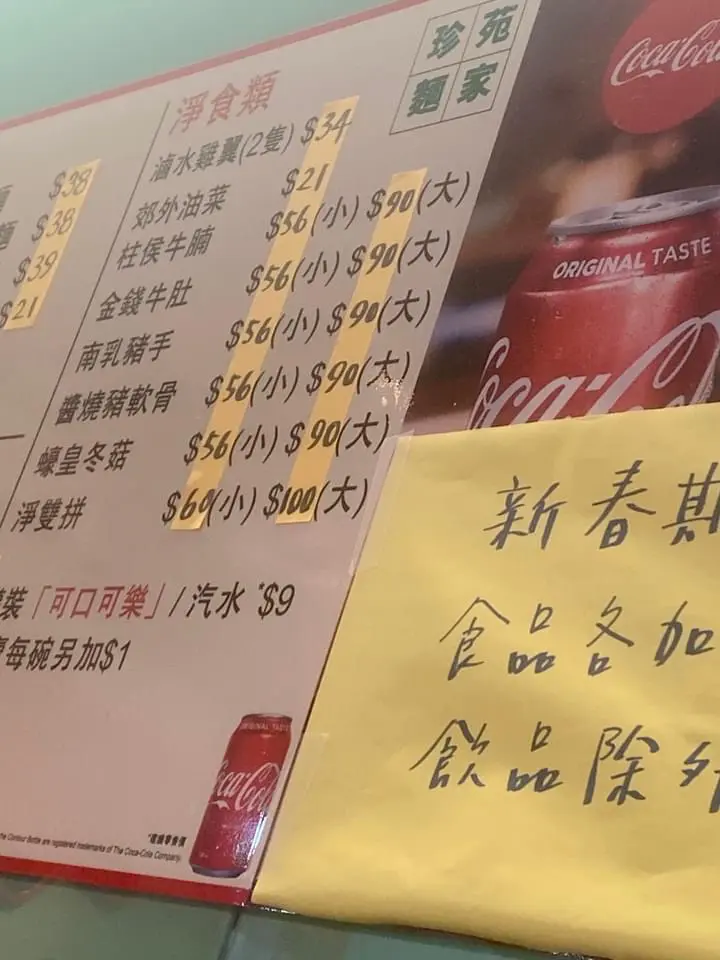 珍苑
麵家
Coca-Cola
淨食類
滷水雞翼(2隻) $34
郊外油菜 $21
柱侯牛腩 $56(小) $90(大)
金錢牛肚 $56(小) $90(大)
南乳豬手 $56(小) $90(大)
醬燒豬軟骨 $56(小) $90(大)
蠔皇冬菇 $56(小) $90(大)
淨雙拼 $60(小) $100(大)
$38
麵 $38
$39
$21
裝「可口可樂」/汽水 *$9
每碗另加$1
ORIGINAL TASTE
Coca-Cola
新春期
食品各加
飲品除外
ORIGINAL TASTE
Coca-Cola
the Contour Bottle are registered trademarks of The Coca-Cola Company.
*建議零售價